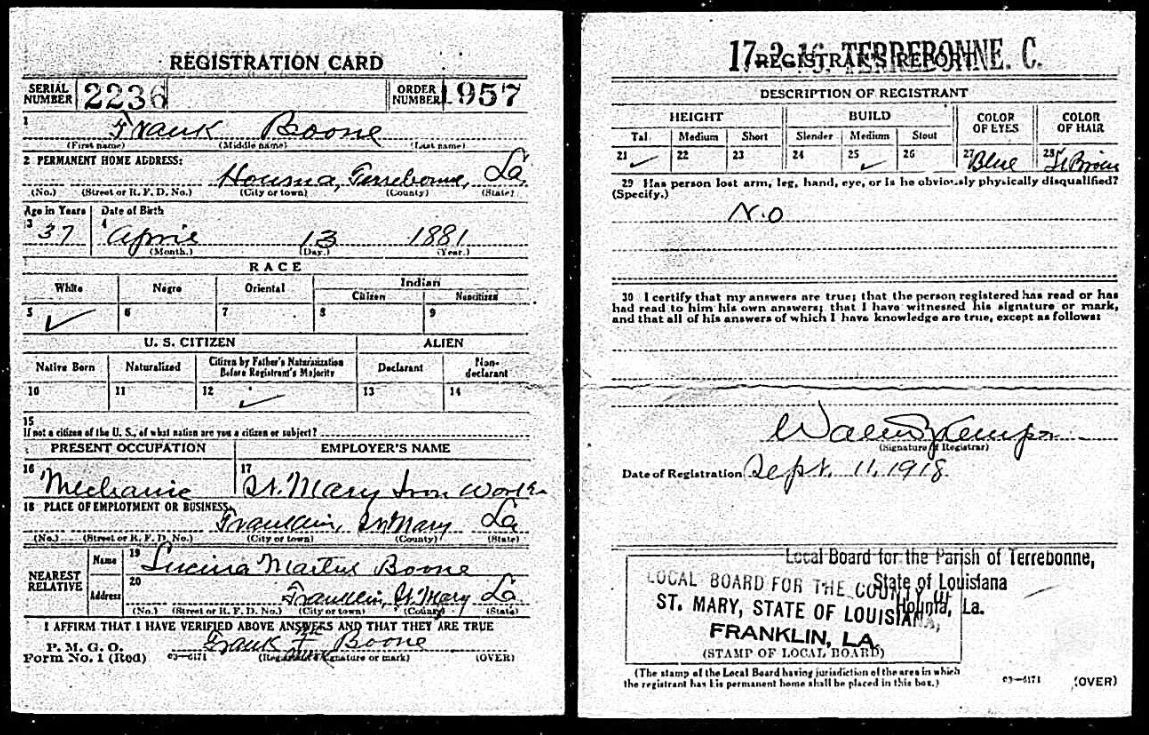 REGISTRATION CARD
SERIAL NUMBER 2236 ORDER NUMBER 1957
1 Frank Boone
(First name) (Middle name) (Last name)
2 PERMANENT HOME ADDRESS:
Houma, Terrebonne, La
(No.) (Street or R. F. D. No.) (City or town) (County) (State)
Age in Years Date of Birth
3 37 4 April 13 1881
(Month.) (Day.) (Year.)
RACE
White Negro Oriental Indian
Citizen Noncitizen
5 ✓ 6 7 8 9
U. S. CITIZEN ALIEN
Native Born Naturalized Citizen by Father's Naturalization Before Registrant's Majority Declarant Non-declarant
10 11 12 ✓ 13 14
15
If not a citizen of the U. S., of what nation are you a citizen or subject?
PRESENT OCCUPATION EMPLOYER'S NAME
16 Mechanic 17 St. Mary Iron Works
18 PLACE OF EMPLOYMENT OR BUSINESS:
Franklin, St Mary La
(No.) (Street or R. F. D. No.) (City or town) (County) (State)
NEAREST RELATIVE Name 19 Boone
Address 20 Franklin, St. Mary La
(No.) (Street or R. F. D. No.) (City or town) (County) (State)
I AFFIRM THAT I HAVE VERIFIED ABOVE ANSWERS AND THAT THEY ARE TRUE
P. M. G. O.
Form No. 1 (Red) 03—6171 Frank Boone
(Registrant's signature or mark) (OVER)
17-2-16. TERREBONNE. C.
REGISTRAR'S REPORT
DESCRIPTION OF REGISTRANT
HEIGHT BUILD COLOR OF EYES COLOR OF HAIR
Tall Medium Short Slender Medium Stout
21 ✓ 22 23 24 25 ✓ 26 27 Blue 28 Lt Brown
29 Has person lost arm, leg, hand, eye, or is he obviously physically disqualified?
(Specify.)
No
30 I certify that my answers are true; that the person registered has read or has
had read to him his own answers; that I have witnessed his signature or mark,
and that all of his answers of which I have knowledge are true, except as follows:
(Signature of Registrar)
Date of Registration Sept. 11, 1918
Local Board for the Parish of Terrebonne,
State of Louisiana
Houma, La.
LOCAL BOARD FOR THE COUNTY OF
ST. MARY, STATE OF LOUISIANA,
FRANKLIN, LA.
(STAMP OF LOCAL BOARD)
(The stamp of the Local Board having jurisdiction of the area in which
the registrant has his permanent home shall be placed in this box.)
03—6171 (OVER)